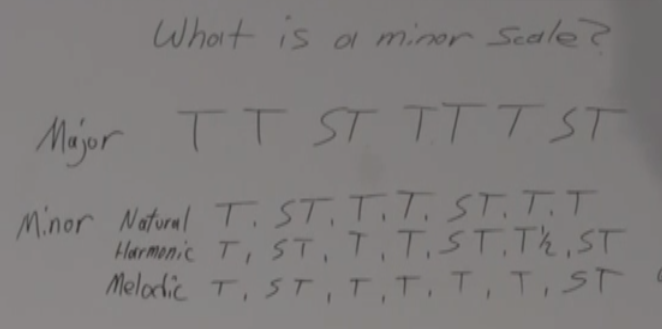 What is a minor scale?
Major T T ST T T T ST
Minor Natural T. ST. T. T. ST. T. T
Harmonic T, ST, T, T, ST, T½, ST
Melodic T, ST, T, T, T, T, ST